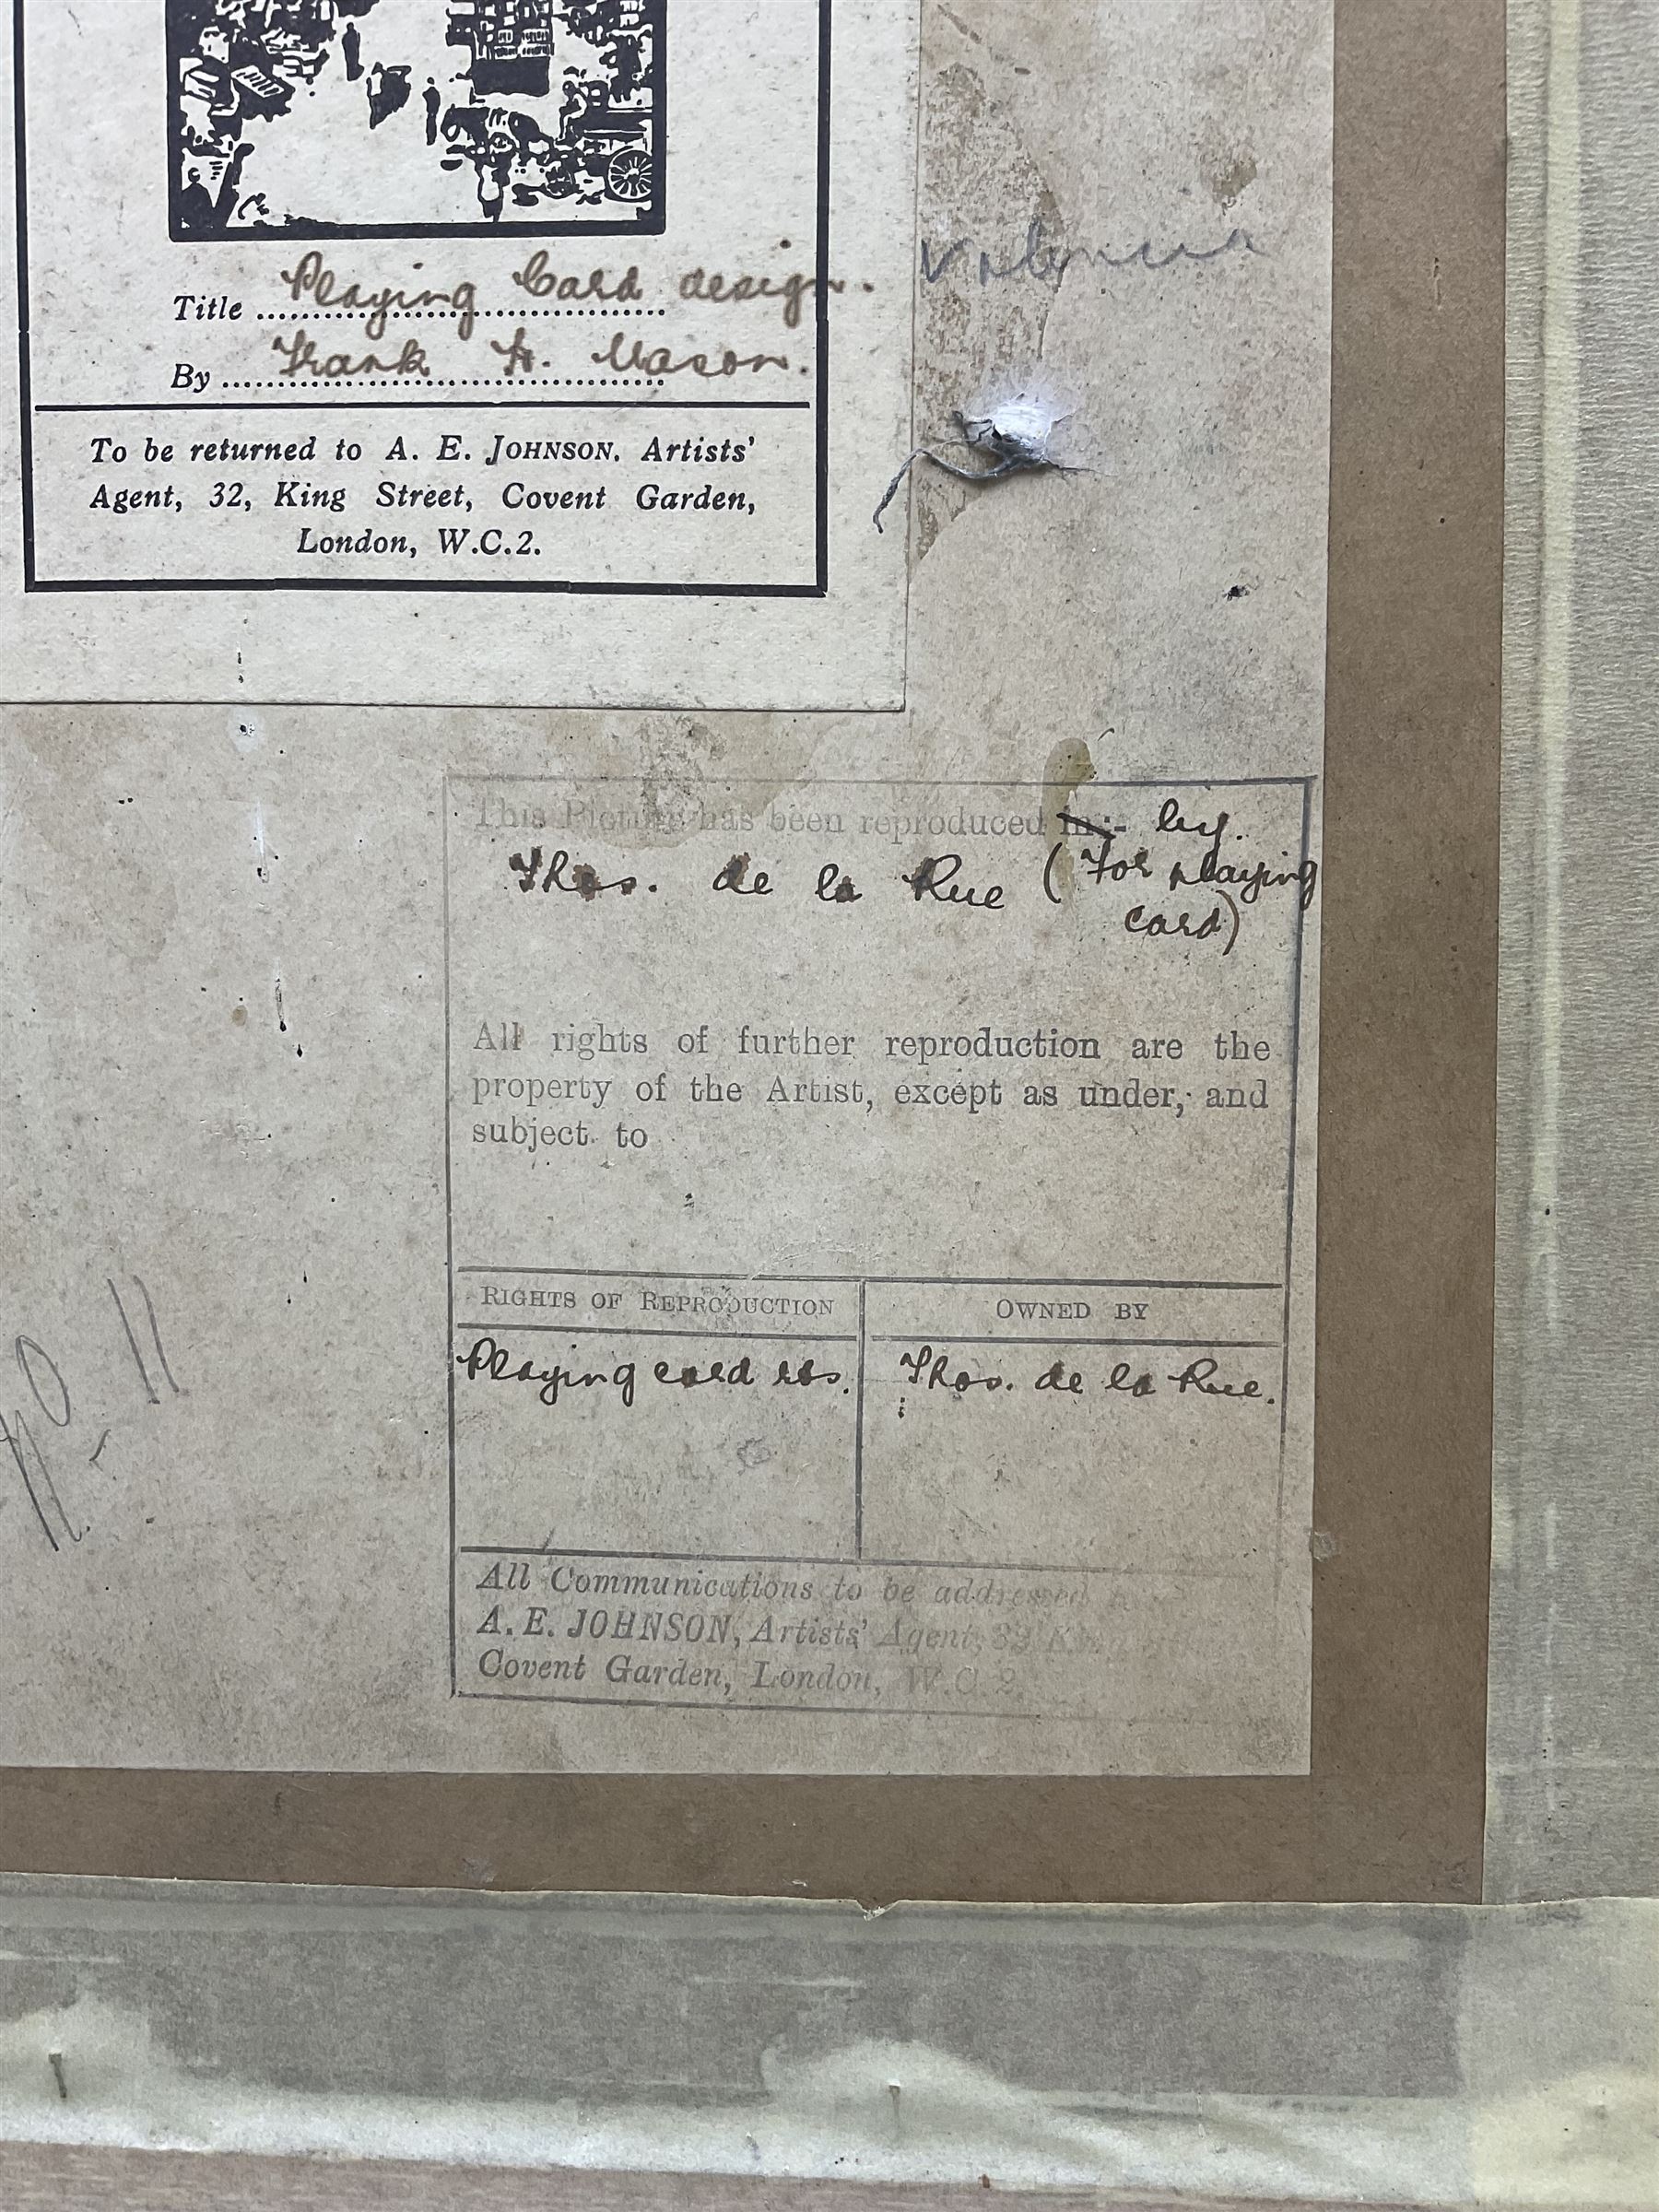 Title Playing Card design.
By Frank H. Mason.
To be returned to A. E. JOHNSON. Artists'
Agent, 32, King Street, Covent Garden,
London, W.C.2.
This Picture has been reproduced in:- by.
Thos. de la Rue (For playing
card)
All rights of further reproduction are the
property of the Artist, except as under, and
subject to
RIGHTS OF REPRODUCTION
OWNED BY
Playing card rts.
Thos. de la Rue.
11
All Communications to be addressed
A. E. JOHNSON, Artists' Agent, 32 K
Covent Garden, London, W.C.2.